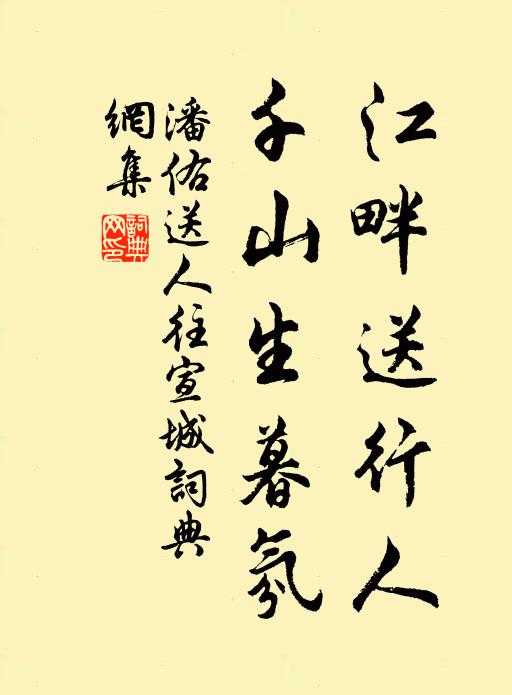 江畔送行人
千山生暮氛
潘佑送人往宣城詞典
網集
詞典网印